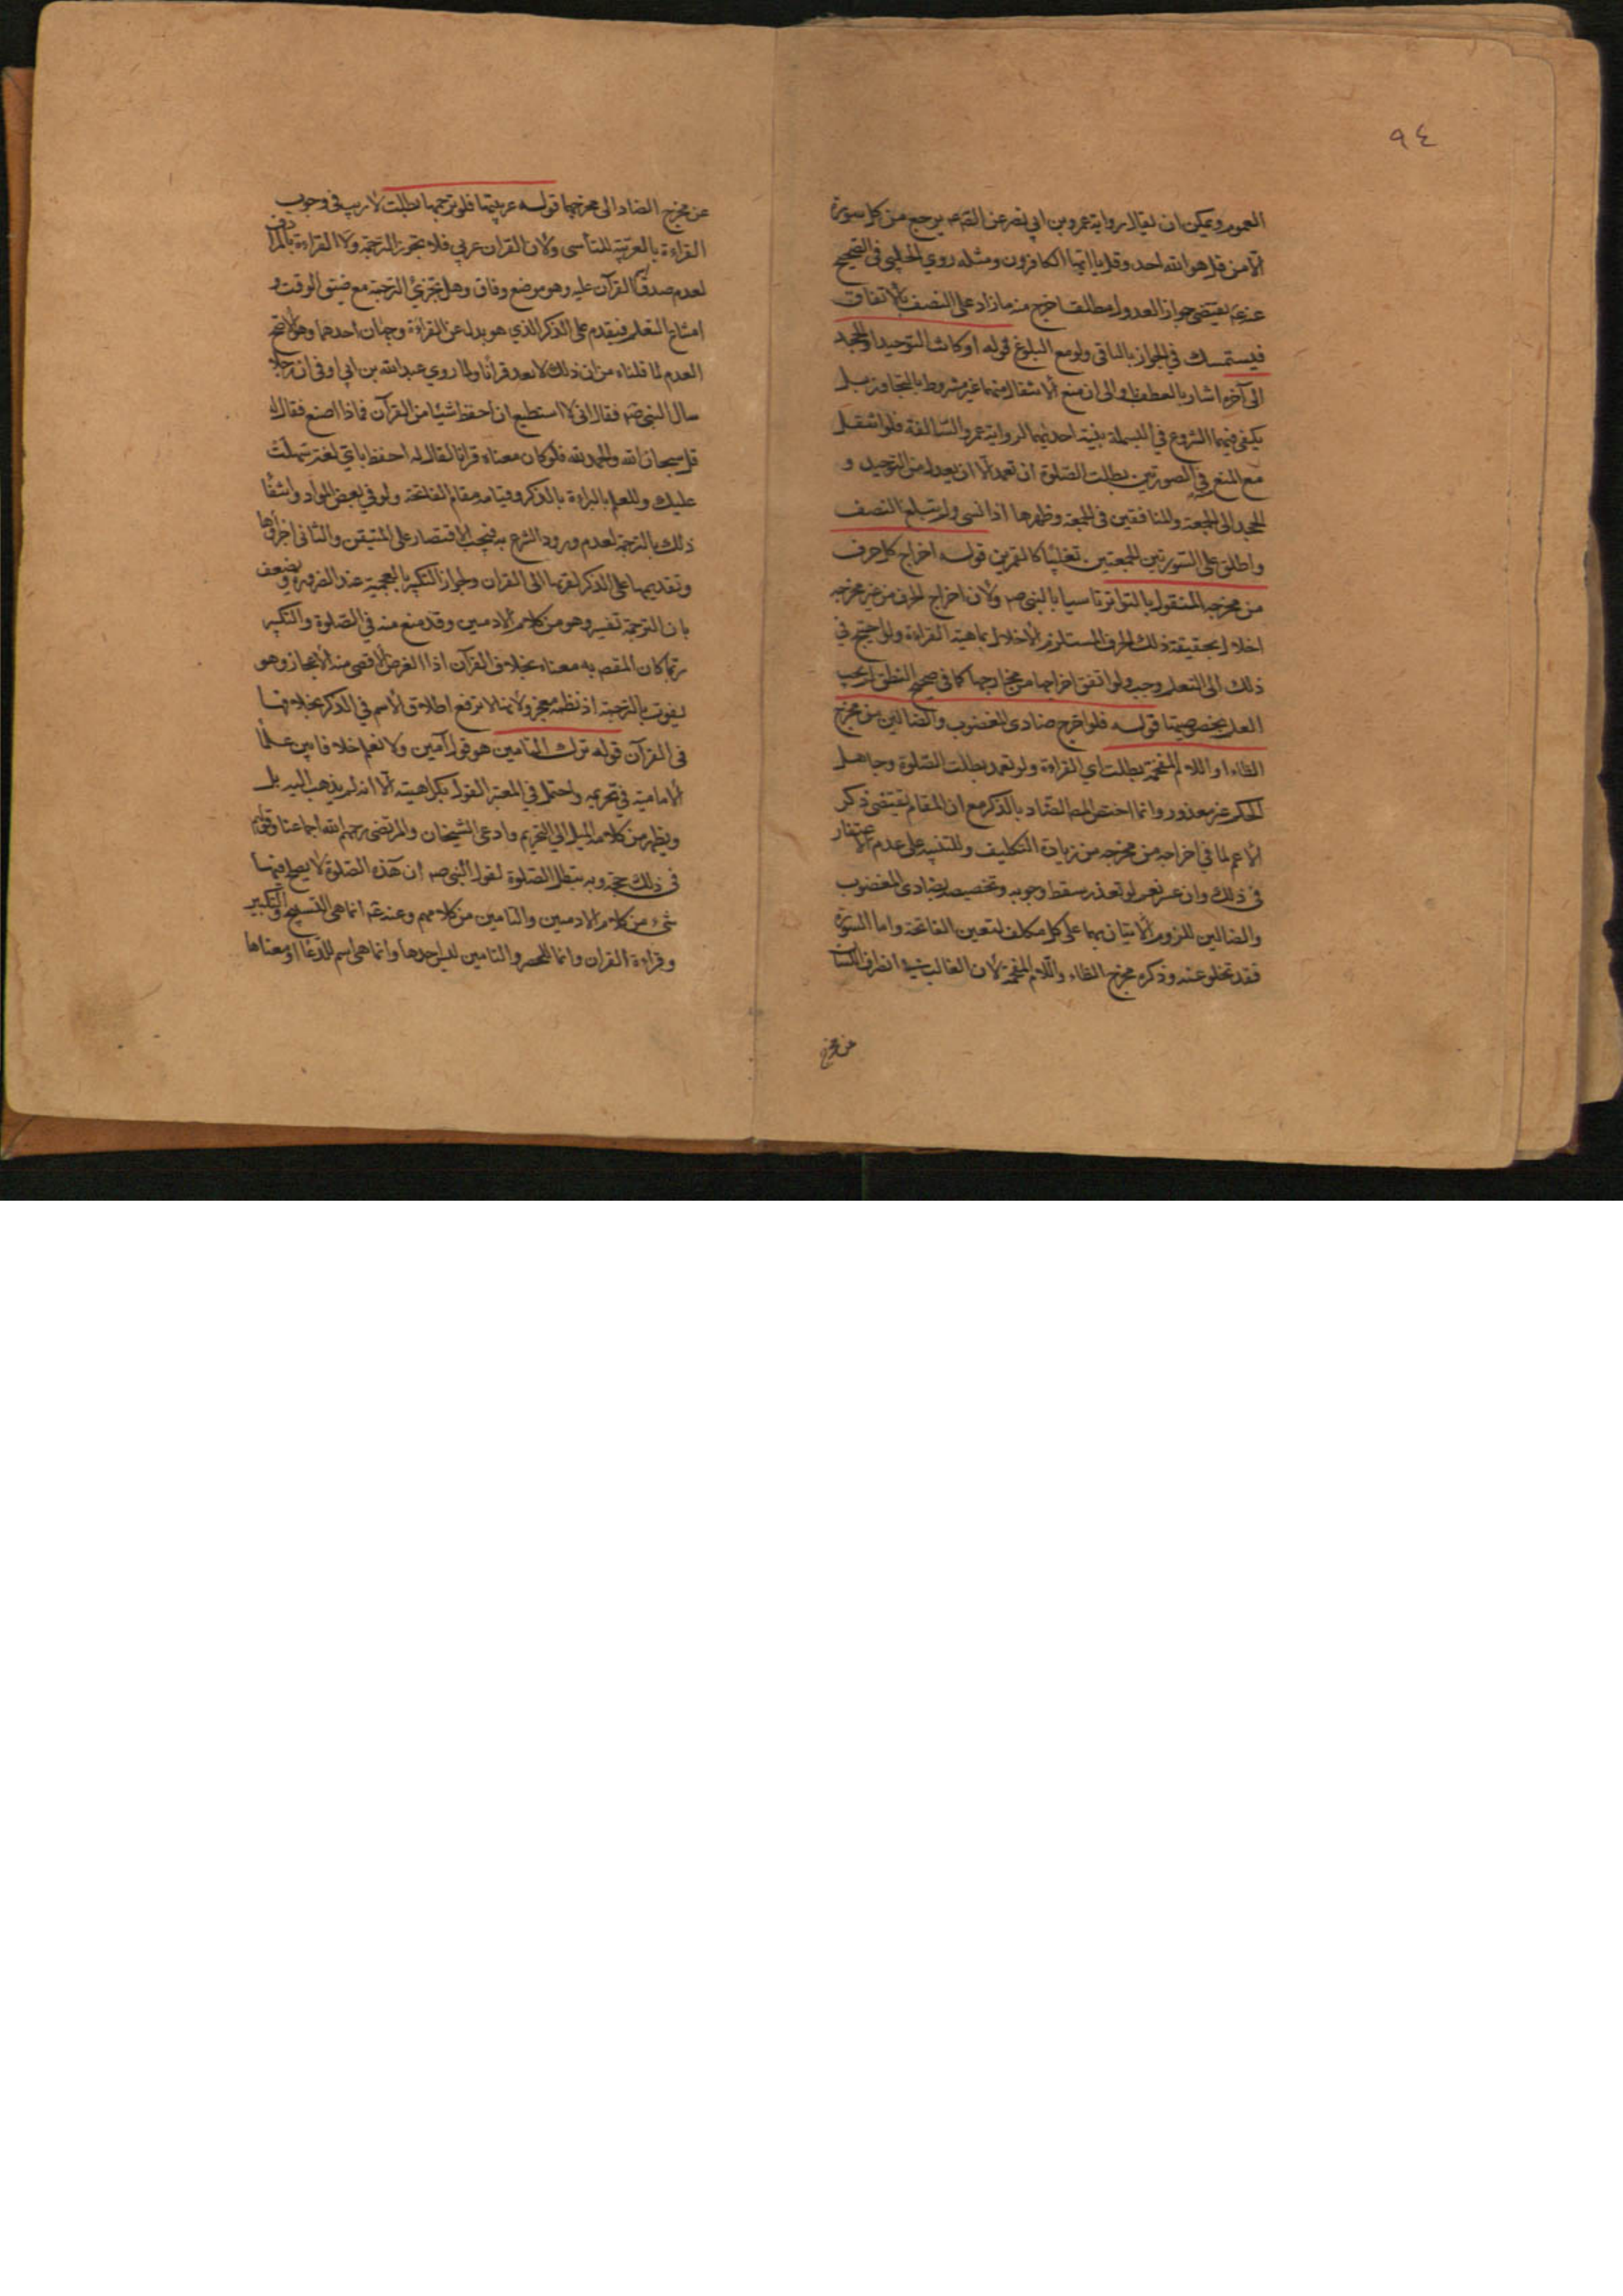 ٩٤
العموم ويمكن ان يقال رواية عمرو بن ابي نصر عن الصّ عه يرجع من كل سورة
الّا من قل هو الله احد وقل يا ايّها الكافرون ومثله روي الحلبي في الصحيح
عنه عه يقتضي جواز العدول مطلقا خرج منه ما زاد على النصف بالاتفاق
فيستمسك في الجواز بالباقي ولو مع البلوغ قوله او كانت التوحيد او الجحد
الى آخره اشار بالعطف باو الى ان منع الانتقال منهما غير مشروط بالتجاوز بل
يكفي فيهما الشروع في البسملة بنية احديهما لرواية عمرو السّالفة فلو انتقل
مع المنع في الصورتين بطلت الصّلوة ان تعمد الّا ان يعدل من التوحيد و
الجحد الى الجمعة والمنافقين في الجمعة وظهرها اذا نسي ولم يبلغ النصف
واطلق على السّورتين الجمعتين تغليبًا كالقمرين قوله اخراج كل حرف
من مخرجه المنقول بالتواتر تاسيا بالنبي صه ولان اخراج الحرف من غير مخرجه
اخلال بحقيقة ذلك الحرف المستلزم الاخلال بماهية القراءة ولو احتيج في
ذلك الى التعلم وجب ولو اتفق اخراجها من مخارجها كما في صحيح النطق لم يجب
العلم بخصوصيتها قوله فلو اخرج ضادي المغضوب والضالين من مخرج
الظاء او اللام المفخمة بطلت اي القراءة ولو تعمد بطلت الصّلوة وجاهل
الحكم غير معذور وانما اختص المص الضّاد بالذكر مع ان المقام يقتضي ذكر
الاعم لما في اخراجه من مخرجه من زيادة التكليف وللتنبيه على عدم الاغتفار
في ذلك وان عسر نعم لو تعذر سقط وجوبه وتخصيصه بضادي المغضوب
والضالين للزوم الاتيان بهما على كل مكلف لتعين الفاتحة واما السّورة
فقد تخلو عنه وذكره مخرج الظاء واللام المفخمة لان الغالب في انصراف اللسان
عن مخرج
عن مخرج الضاد الى مخرجهما قوله عربيتها فلو ترجمها بطلت لا ريب في وجوب
القراءة بالعربيّة للتأسي ولان القران عربي فلا يجوز الترجمة ولا القراءة بالمرادف
لعدم صدق القرآن عليه وهو موضع وفاق وهل تجزئ الترجمة مع ضيق الوقت و
امتناع التعلم فيقدم على الذكر الذي هو بدل عن القراءة وجهان احدهما وهو الاصح
العدم لما قلناه من ان ذلك لا يعد قرأنا ولما روي عبد الله بن ابي اوفى ان رجلا
سال النبي صه فقال اني لا استطيع ان احفظ شيئا من القرآن فماذا اصنع فقال له
قل سبحان الله والحمد لله فلو كان معناه قرانا لقال له احفظ باي لغة سهلت
عليك وللعلم بالبراءة بالذكر وقيامه مقام الفاتحة ولو في بعض الموارد وانتفا
ذلك بالترجمة لعدم ورود الشرع به فيجب الاقتصار على المتيقن والثاني اجزاؤها
وتقديمها على الذكر لقربها الى القران ولجواز التكبير بالعجمية عند الضرورة ويضعف
بان الترجمة تفسير وهو من كلام الادميين وقد منع منه في الصّلوة والتكبير
ربما كان المقصد به معناه بخلاف القرآن اذ الغرض الاقصى منه الاعجاز وهو
يفوت بالترجمة اذ نظمه معجز ولانها لا ترفع اطلاق الاسم في الذكر بخلافها
في القرآن قوله ترك التامين هو قول آمين ولا نعلم خلافا بين علمأ
الامامية في تحريمه واحتمل في المعتبر القول بكراهيته الّا انه لم يذهب اليه بل
ويظهر من كلامه الميل الى التحريم وادعى الشيخان والمرتضى رحمهم الله اجماعنا وقولهم
في ذلك حجة وبه تبطل الصّلوة لقول النبي صه ان هذه الصّلوة لا يصلح فيها
شيء من كلام الادميين والتامين من كلامهم وعنه عه انما هي التسبيح والتكبير
وقراءة القران وانما للحصر والتامين ليس احدها وانما هي اسم للدّعا او معناها